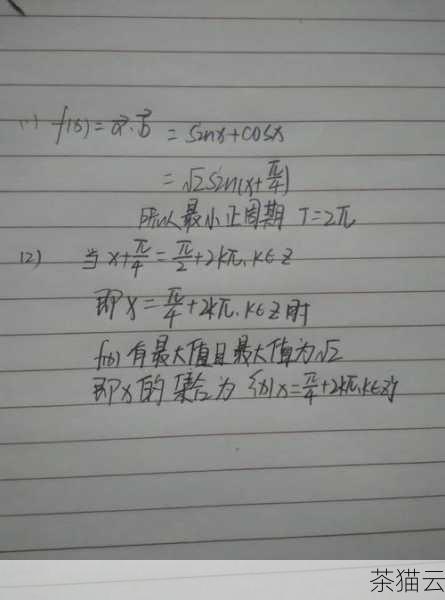 (1) f(x)=a⃗·b⃗ = sinx+cosx
= √2sin(x+π/4)
所以最小正周期 T=2π
(2) 当 x+π/4=π/2+2kπ,k∈Z
即 x=π/4+2kπ,k∈Z时
f(x)有最大值且最大值为√2
即x的集合为 {x|x=π/4+2kπ,k∈Z}
茶猫云